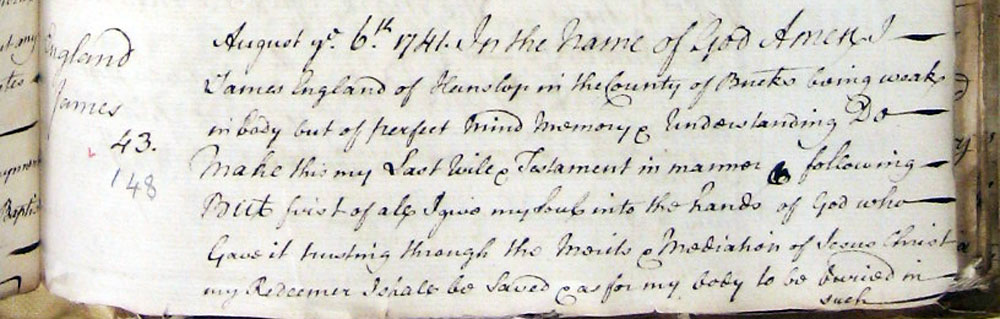 England
James
43.
148
August ye. 6th. 1741. In the Name of God Amen I
James England of Hanslop in the County of Bucks being weak
in body but of perfect Mind Memory & Understanding Do
Make this my Last Will & Testament in manner following
But first of all I give my Soul into the hands of God who
Gave it trusting through the Merits & Mediation of Jesus Christ
my Redeemer I shall be Saved & as for my body to be buried in
such